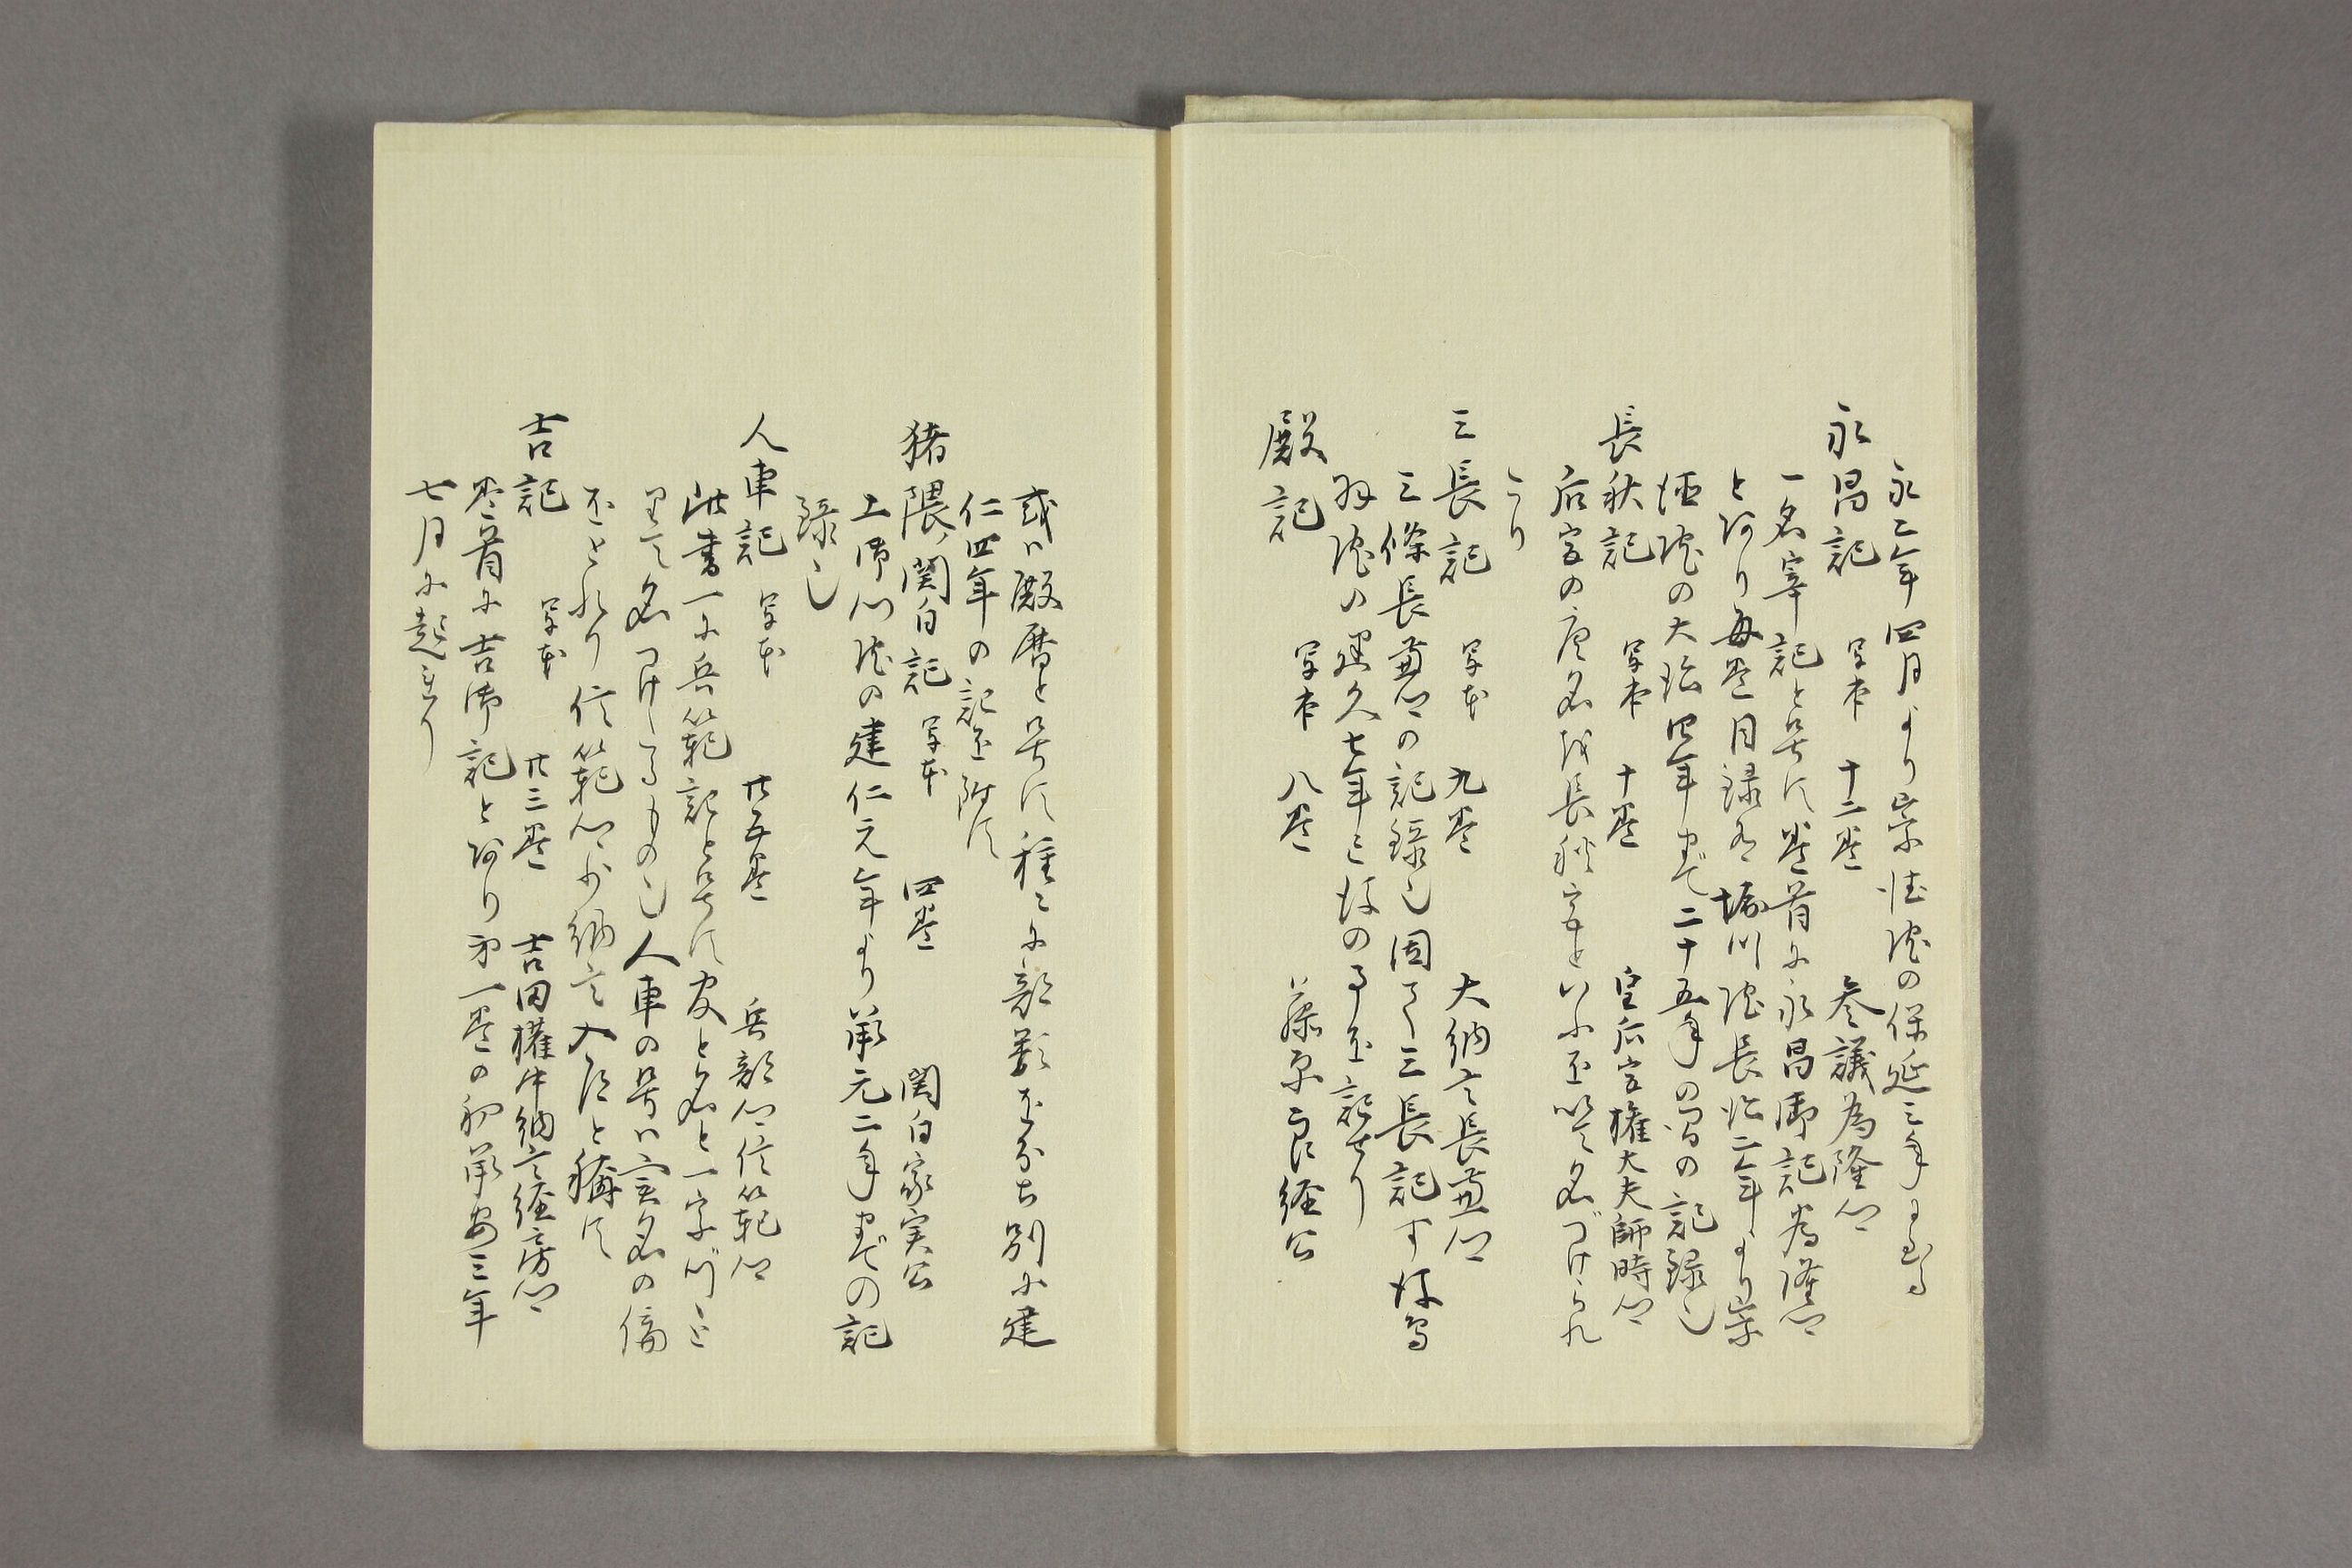 永二年四月より崇徳院の保延三年に至る
永昌記 写本 十二巻 参議為隆卿
一名宰記と号す巻首に永昌御記為隆卿
とあり毎巻目録有堀川院長治二年より崇
徳院の大治四年まで二十五年の間の記録也
長秋記 写本 十巻 皇后宮権大夫師時卿
后宮の唐名を長秋宮といふ至以て名づけられ
たり
三長記 写本 九巻 大納言長兼卿
三條長兼卿の記録也因て三長記す後鳥
羽院の建久七年已後の事を記せり
殿記 写本 八巻 藤原良経公
或ハ殿暦と号す種々に部類を分ち別に建
仁四年の記を附す
猪隈関白記 写本 四巻 関白家実公
土御門院の建仁元年より承元二年までの記
録也
人車記 写本 廿五巻 兵部卿信範卿
此書一に兵範記と号す官と名と一字づゝを
以て名つけたるもの也人車の号ハ実名の偏
をとれり信範卿少納言入道と称す
吉記 写本 廿三巻 吉田権中納言経房卿
巻首に吉御記とあり第一巻の初承安三年
七月に起れり